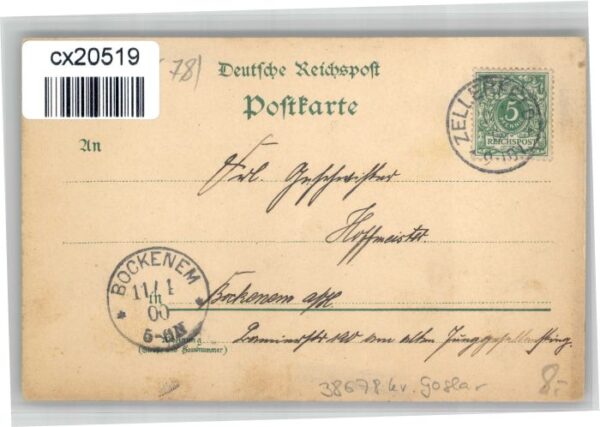 cx20519
78)
Deutsche Reichspost
Postkarte
ZELLERFELD
5
PFENNIG
REICHSPOST
An
Frl. Geschwister
Hoffmeister.
BOCKENEM
11/1
00
5-6N
in
Bockenem a/H.
Wohnung
(Straße und Hausnummer)
am alten
38678 kr. Goslar
8.-